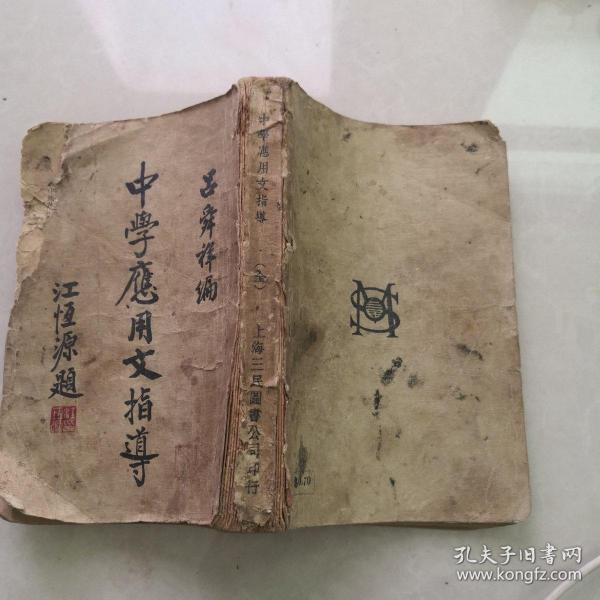 呂舜祥編
中學應用文指導
江恆源題
中學應用文指導
（全）
上海三民圖書公司印行
孔夫子旧书网
www.kongfz.com